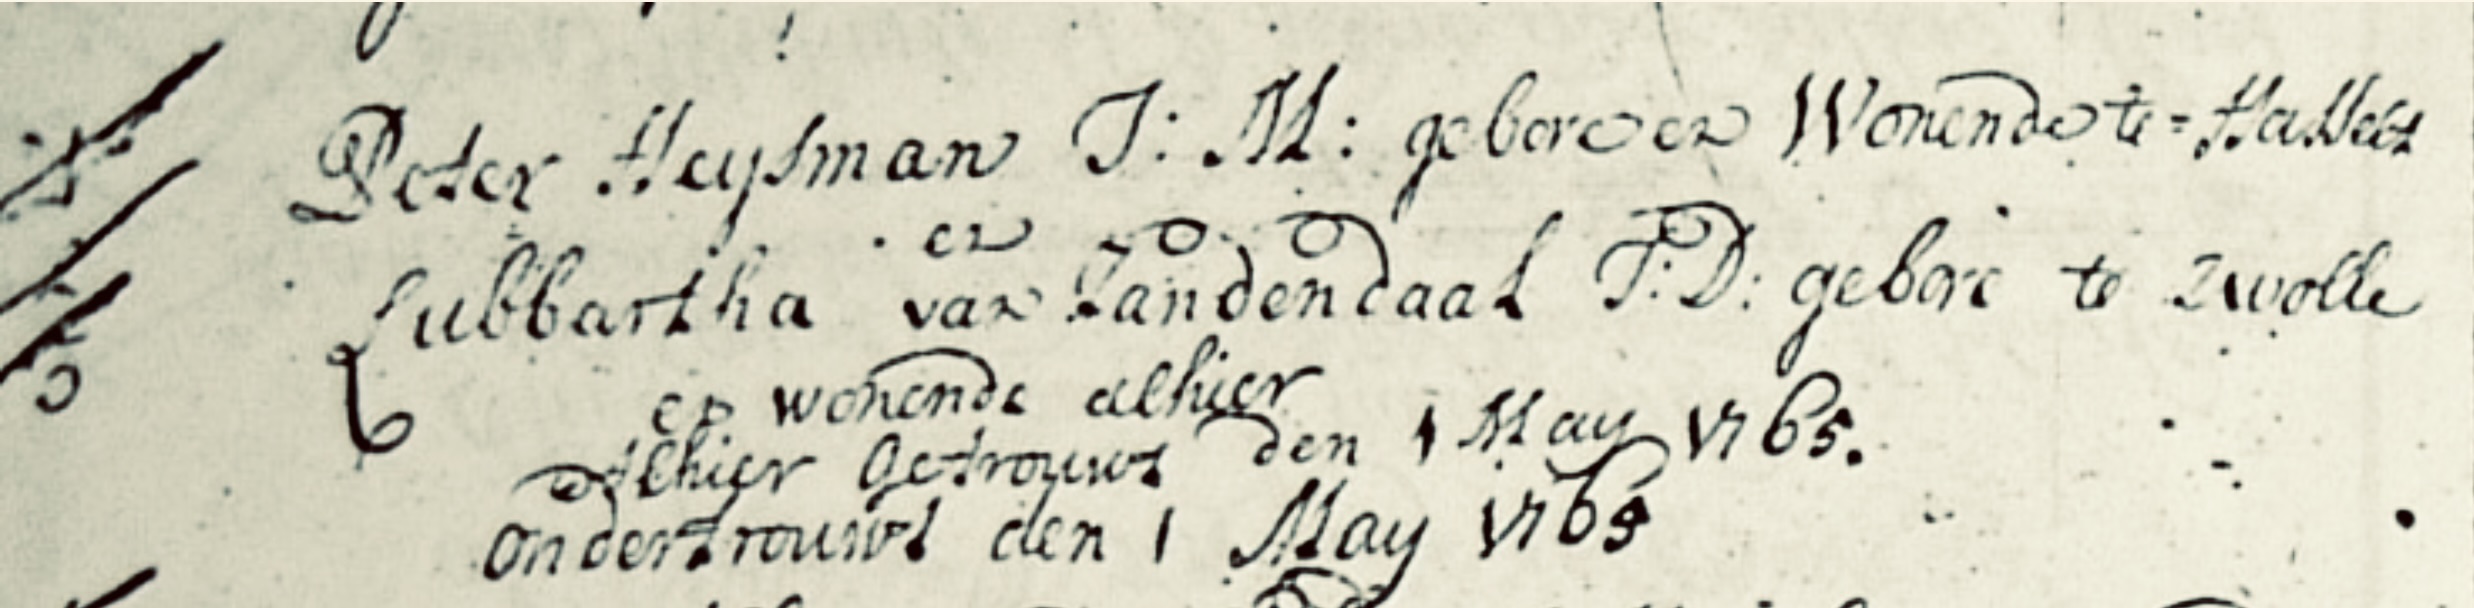 Peter Heysman J: M: gebore en Wonende te = Hasselt
en
Lubbartha van Zandendaal J: D: gebore te Zwolle
en wonende alhier
Alhier Getrouwt den 1 May 1765.
Ondertrouwt den 1 May 1765